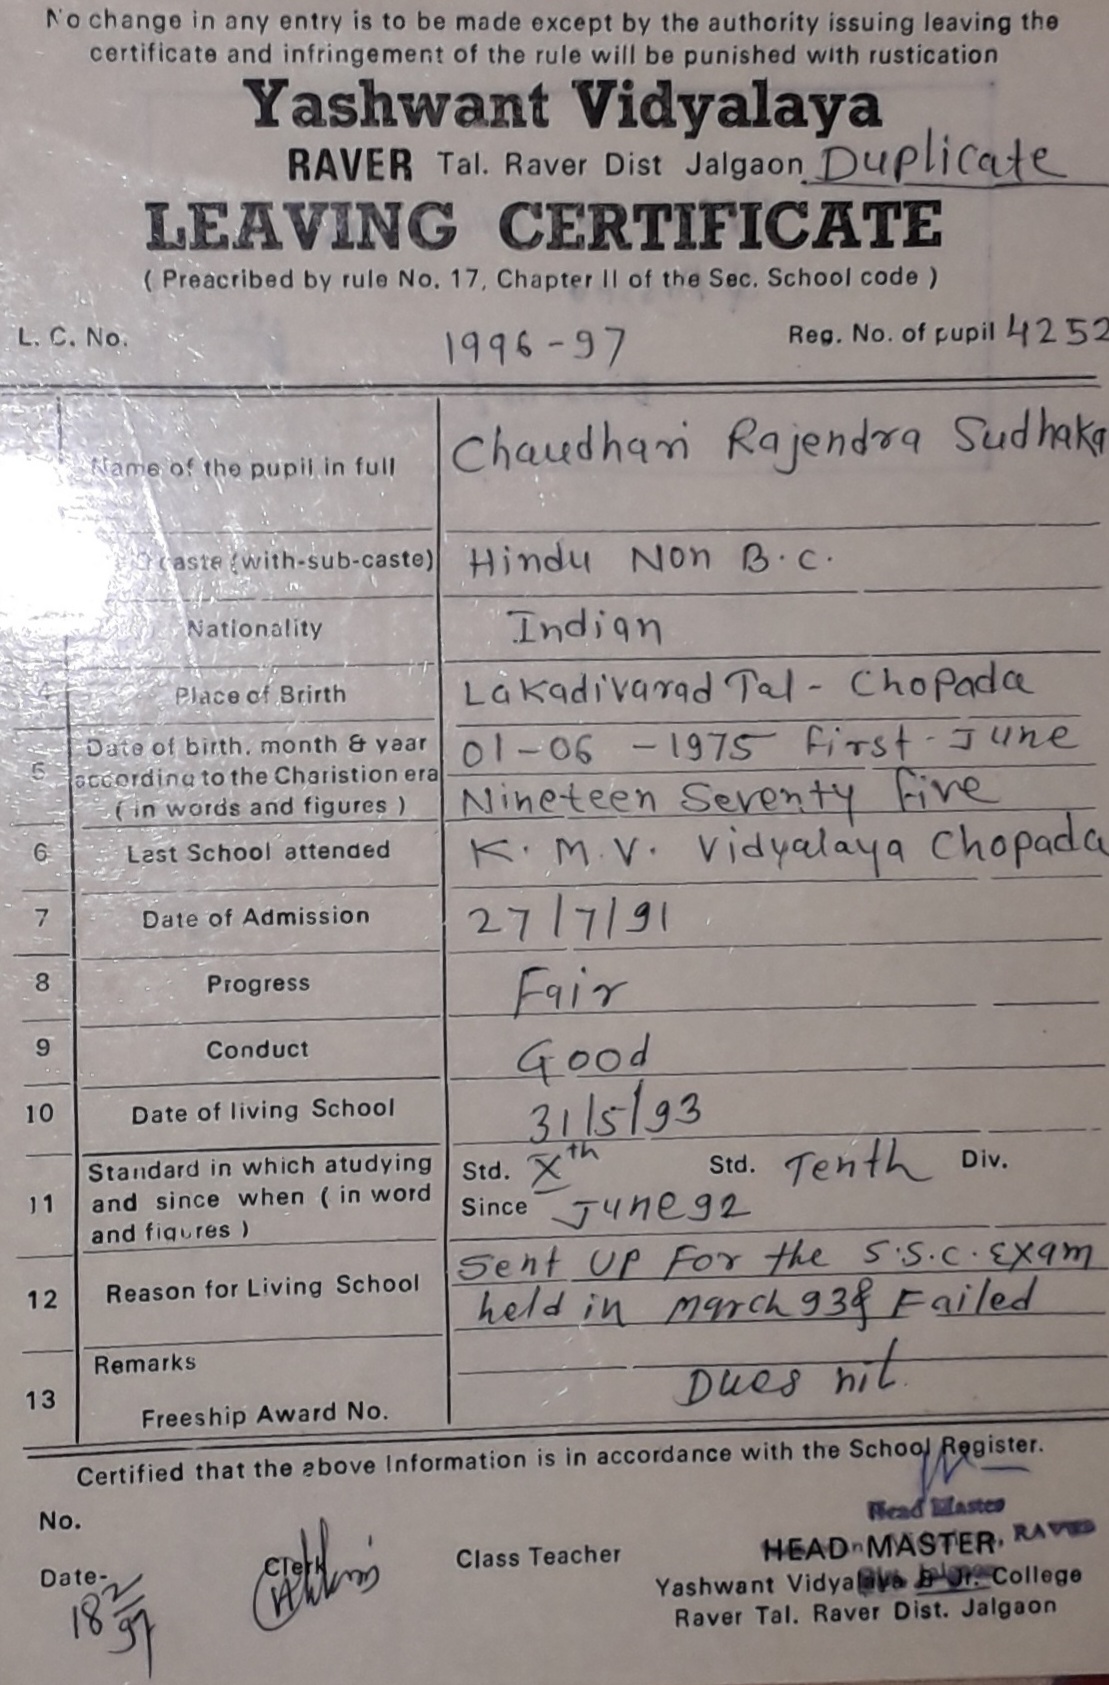 No change in any entry is to be made except by the authority issuing leaving the
certificate and infringement of the rule will be punished with rustication
Yashwant Vidyalaya
RAVER Tal. Raver Dist Jalgaon Duplicate
LEAVING CERTIFICATE
( Preacribed by rule No. 17, Chapter II of the Sec. School code )
L. C. No. 1996-97 Reg. No. of pupil 4252
Name of the pupil in full Chaudhari Rajendra Sudhaka
caste (with-sub-caste) Hindu Non B.C.
Nationality Indian
4 Place of Brirth Lakadivarad Tal - Chopada
Date of birth, month & year 01-06-1975 First-June
5 according to the Charistion era
( in words and figures ) Nineteen Seventy Five
6 Last School attended K. M. V. Vidyalaya Chopada
7 Date of Admission 27/7/91
8 Progress Fair
9 Conduct Good
10 Date of living School 31/5/93
Standard in which atudying Std. Xth Std. Tenth Div.
11 and since when ( in word Since June 92
and figures )
12 Reason for Living School Sent up For the S.S.C. Exam
held in March 93 & Failed
13 Remarks
Dues nil.
Freeship Award No.
Certified that the above Information is in accordance with the School Register.
No.
Head Master
HEAD MASTER, RAVER
Date- Clerk Class Teacher
18/2/97
Yashwant Vidyalaya & Jr. College
Raver Tal. Raver Dist. Jalgaon